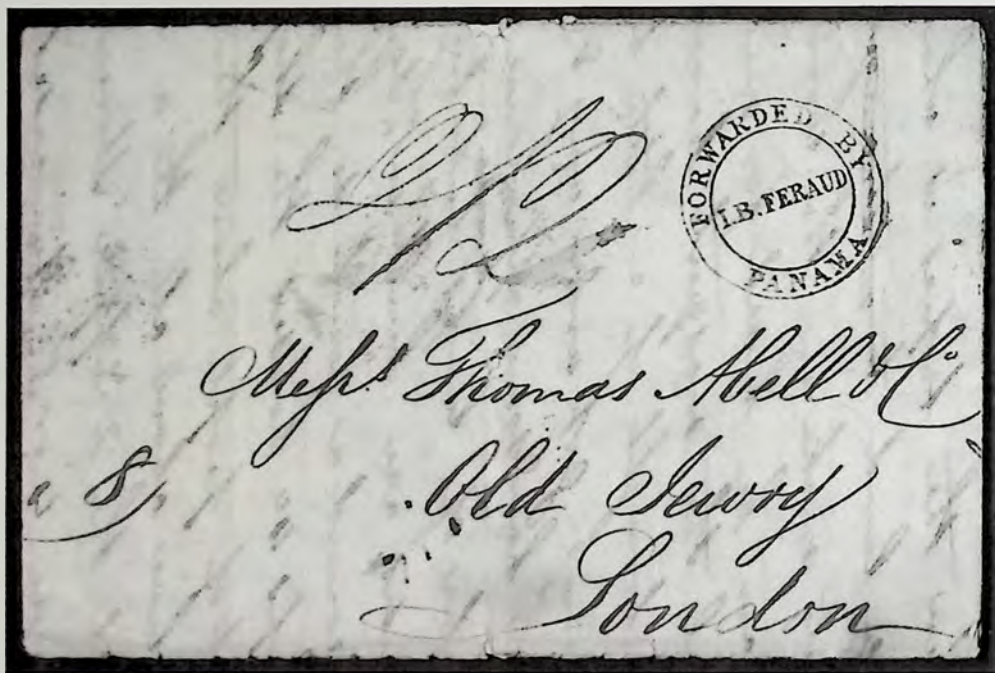 FORWARDED BY
I.B. FERAUD
PANAMA
Messrs Thomas Abell & Co
8
Old Jewry
London